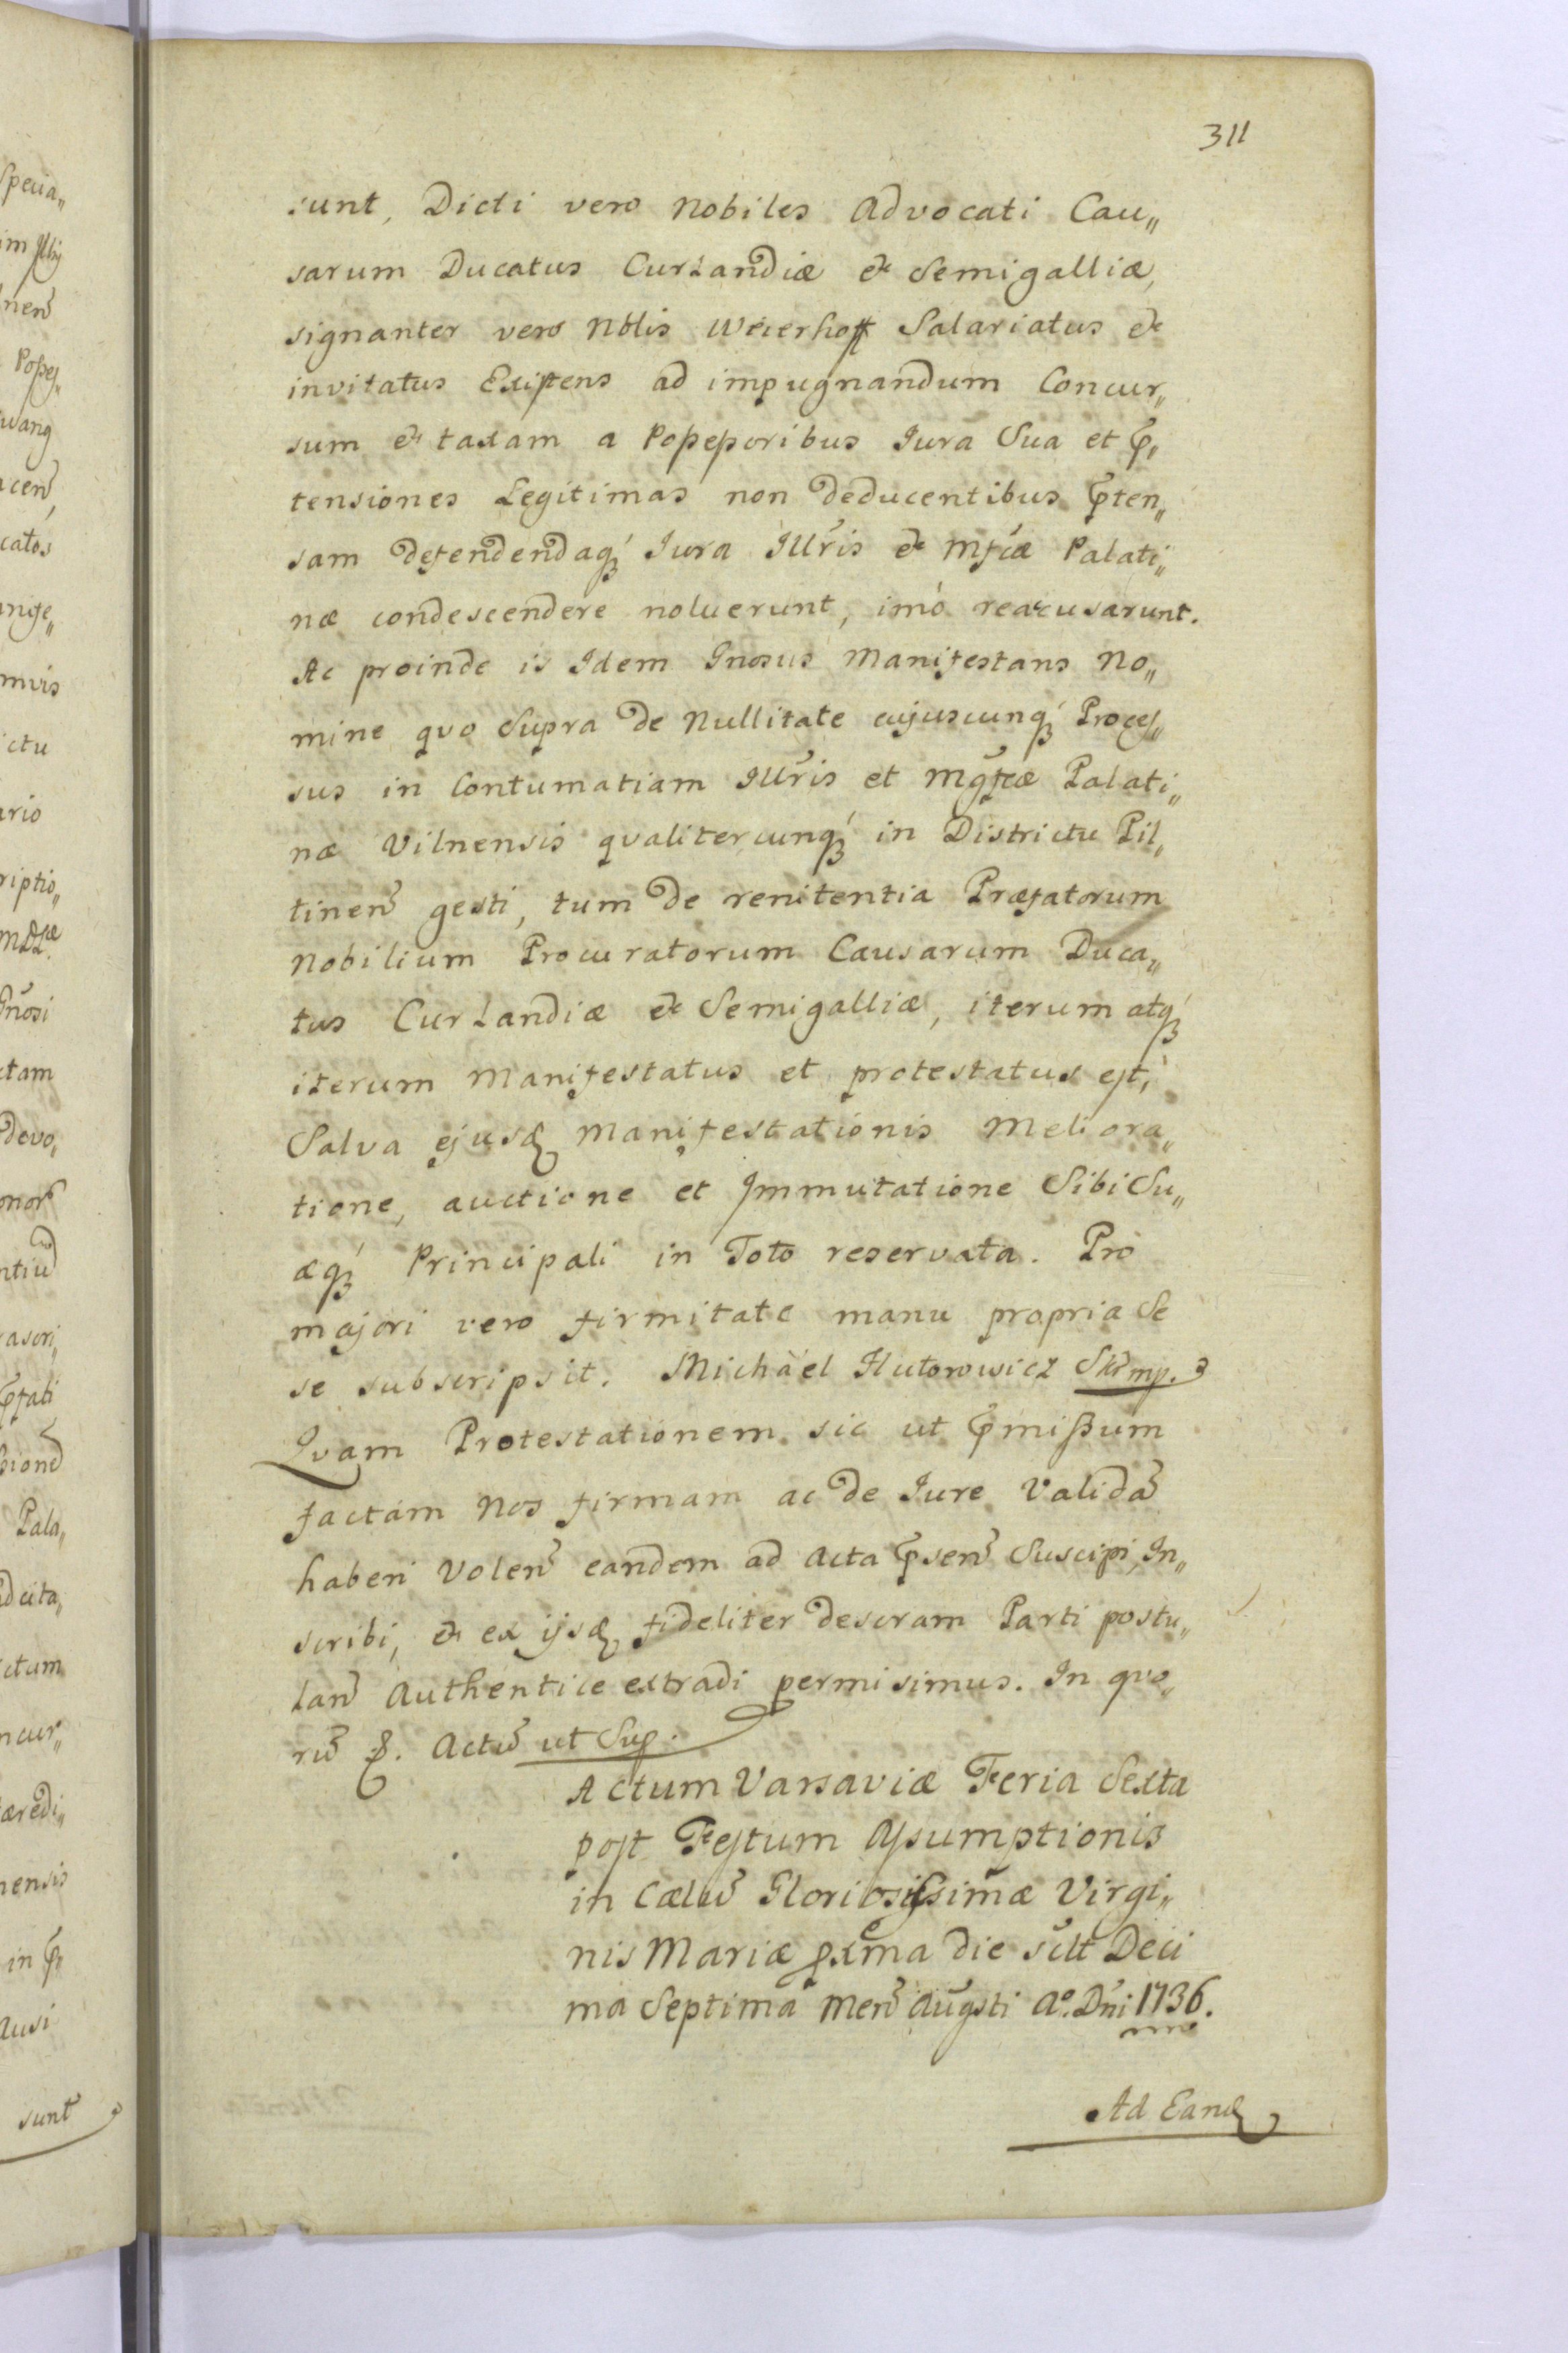 311
sunt, Dicti vero Nobiles Advocati Cau„
sarum Ducatus Curlandiæ et Semigalliæ,
signanter vero Nblis Weierhoff Salariatus et
invitatus Existens ad impugnandum Concur„
sum et taxam a Possessoribus Iura Sua et p̃„
tensiones Legitimas non deducentibus p̃ten„
sam defendendaq́ Iura Illr̃is et Mfcæ Palati„
næ condescendere noluerunt, imó recusarunt.
Ac proinde is Idem Gnosus Manifestans No„
mine quo Supra de Nullitate cujuscunq́ Proces„
sus in Contumatiam Illr̃is et Mgfcæ Palati„
næ Vilnensis qvalitercunq́ in Districtu Pil„
tinen̄ gesti, tum de renitentia Præfatorum
Nobilium Procuratorum Causarum Duca„
tus Curlandiæ et Semigalliæ, iterum atq́
iterum Manifestatus et protestatus est,
Salva ejusd Manifestationis Meliora„
tione, auctione et Immutatione Sibi Su„
æq́ Principali in Toto reservata. Pro
majori vero firmitate manu propria Se
se subscripsit. Michäel Hutorowicz Skr mp.
Qvam Protestationem sic ut p̃missum
factam Nos firmam ac de Iure Validam̃
haberi Volen̄ eandem ad Acta p̃sen̄ Suscipi, In„
scribi, et ex ijsd fideliter descram Parti postu„
lan̄ Authentice extradi permisimus. In quo„
rũ &. Actũ ut Sup.
Actum Varsaviæ Feria Sexta
post Festum Assumptionis
in Cælũ Gloriosissimæ Virgi„
nis Mariæ pxma die sclt Deci
ma Septima Men̄ Augsti Aº. Dni 1736.
Ad Eand